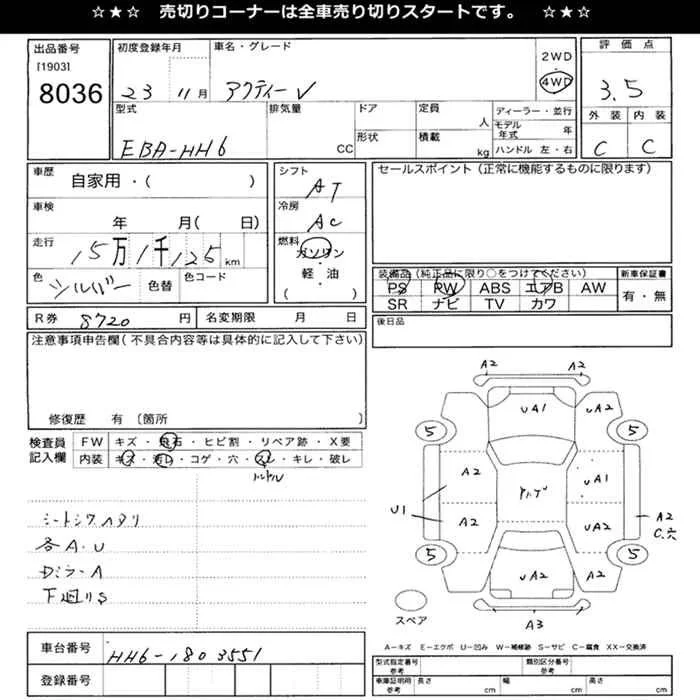 ☆★☆ 売切りコーナーは全車売り切りスタートです。 ☆★☆
出品番号
[1903]
8036
初度登録年月
23 11月
車名・グレード
アクティーV
2WD
・
4WD
評価点
3.5
外装 内装
C C
型式
EBA-HH6
排気量
CC
ドア
形状
定員
人
積載
kg
ディーラー・並行
モデル年式 年
ハンドル 左・右
車歴
自家用・( )
車検
年 月( 日)
走行
15万1千125km
色
シルバー
色替
色コード
シフト
AT
冷房
AC
燃料
ガソリン
・
軽・油
( )
セールスポイント(正常に機能するものに限ります)
装備品(純正品に限り○をつけてください)
PS PW ABS エアB AW
SR ナビ TV カワ
新車保証書
有・無
R券 8720円
名変期限 月 日
後日品
注意事項申告欄(不具合内容等は具体的に記入して下さい)
修復歴 有〔箇所 〕
検査員記入欄
FW キズ・飛石・ヒビ割・リペア跡・X要
内装 キズ・汚れ・コゲ・穴・スレ・キレ・破レ
ハンドル
シートシワヘタリ
各A.U
DミラーA
下廻りS
A2 A2
UA1
5 UA2 5
A2 UA1
U1 A2 UA2 A2
C.穴
5 UA2 A2 5
A3
スペア
A−キズ E−エクボ U−凹み W−補修跡 S−サビ C−腐食 XX−交換済
車台番号
HH6-1803551
登録番号
型式指定番号
参考
類別区分番号
参考
車庫証明用
参考
長さ cm
幅 cm
高さ cm